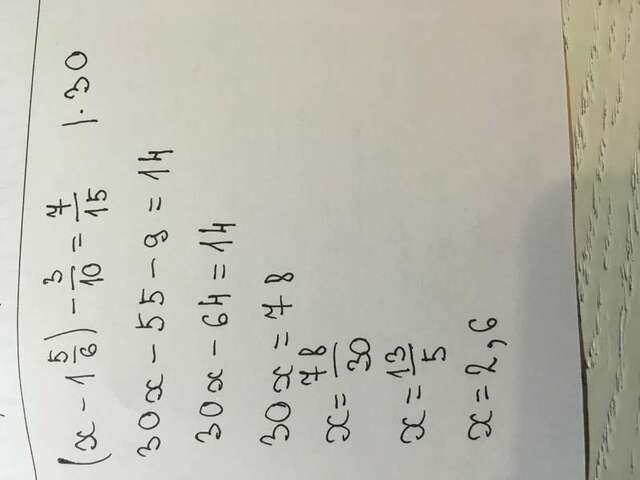 (x - 1 5/6) - 3/10 = 7/15 | · 30
30x - 55 - 9 = 14
30x - 64 = 14
30x = 78
x = 78/30
x = 13/5
x = 2,6